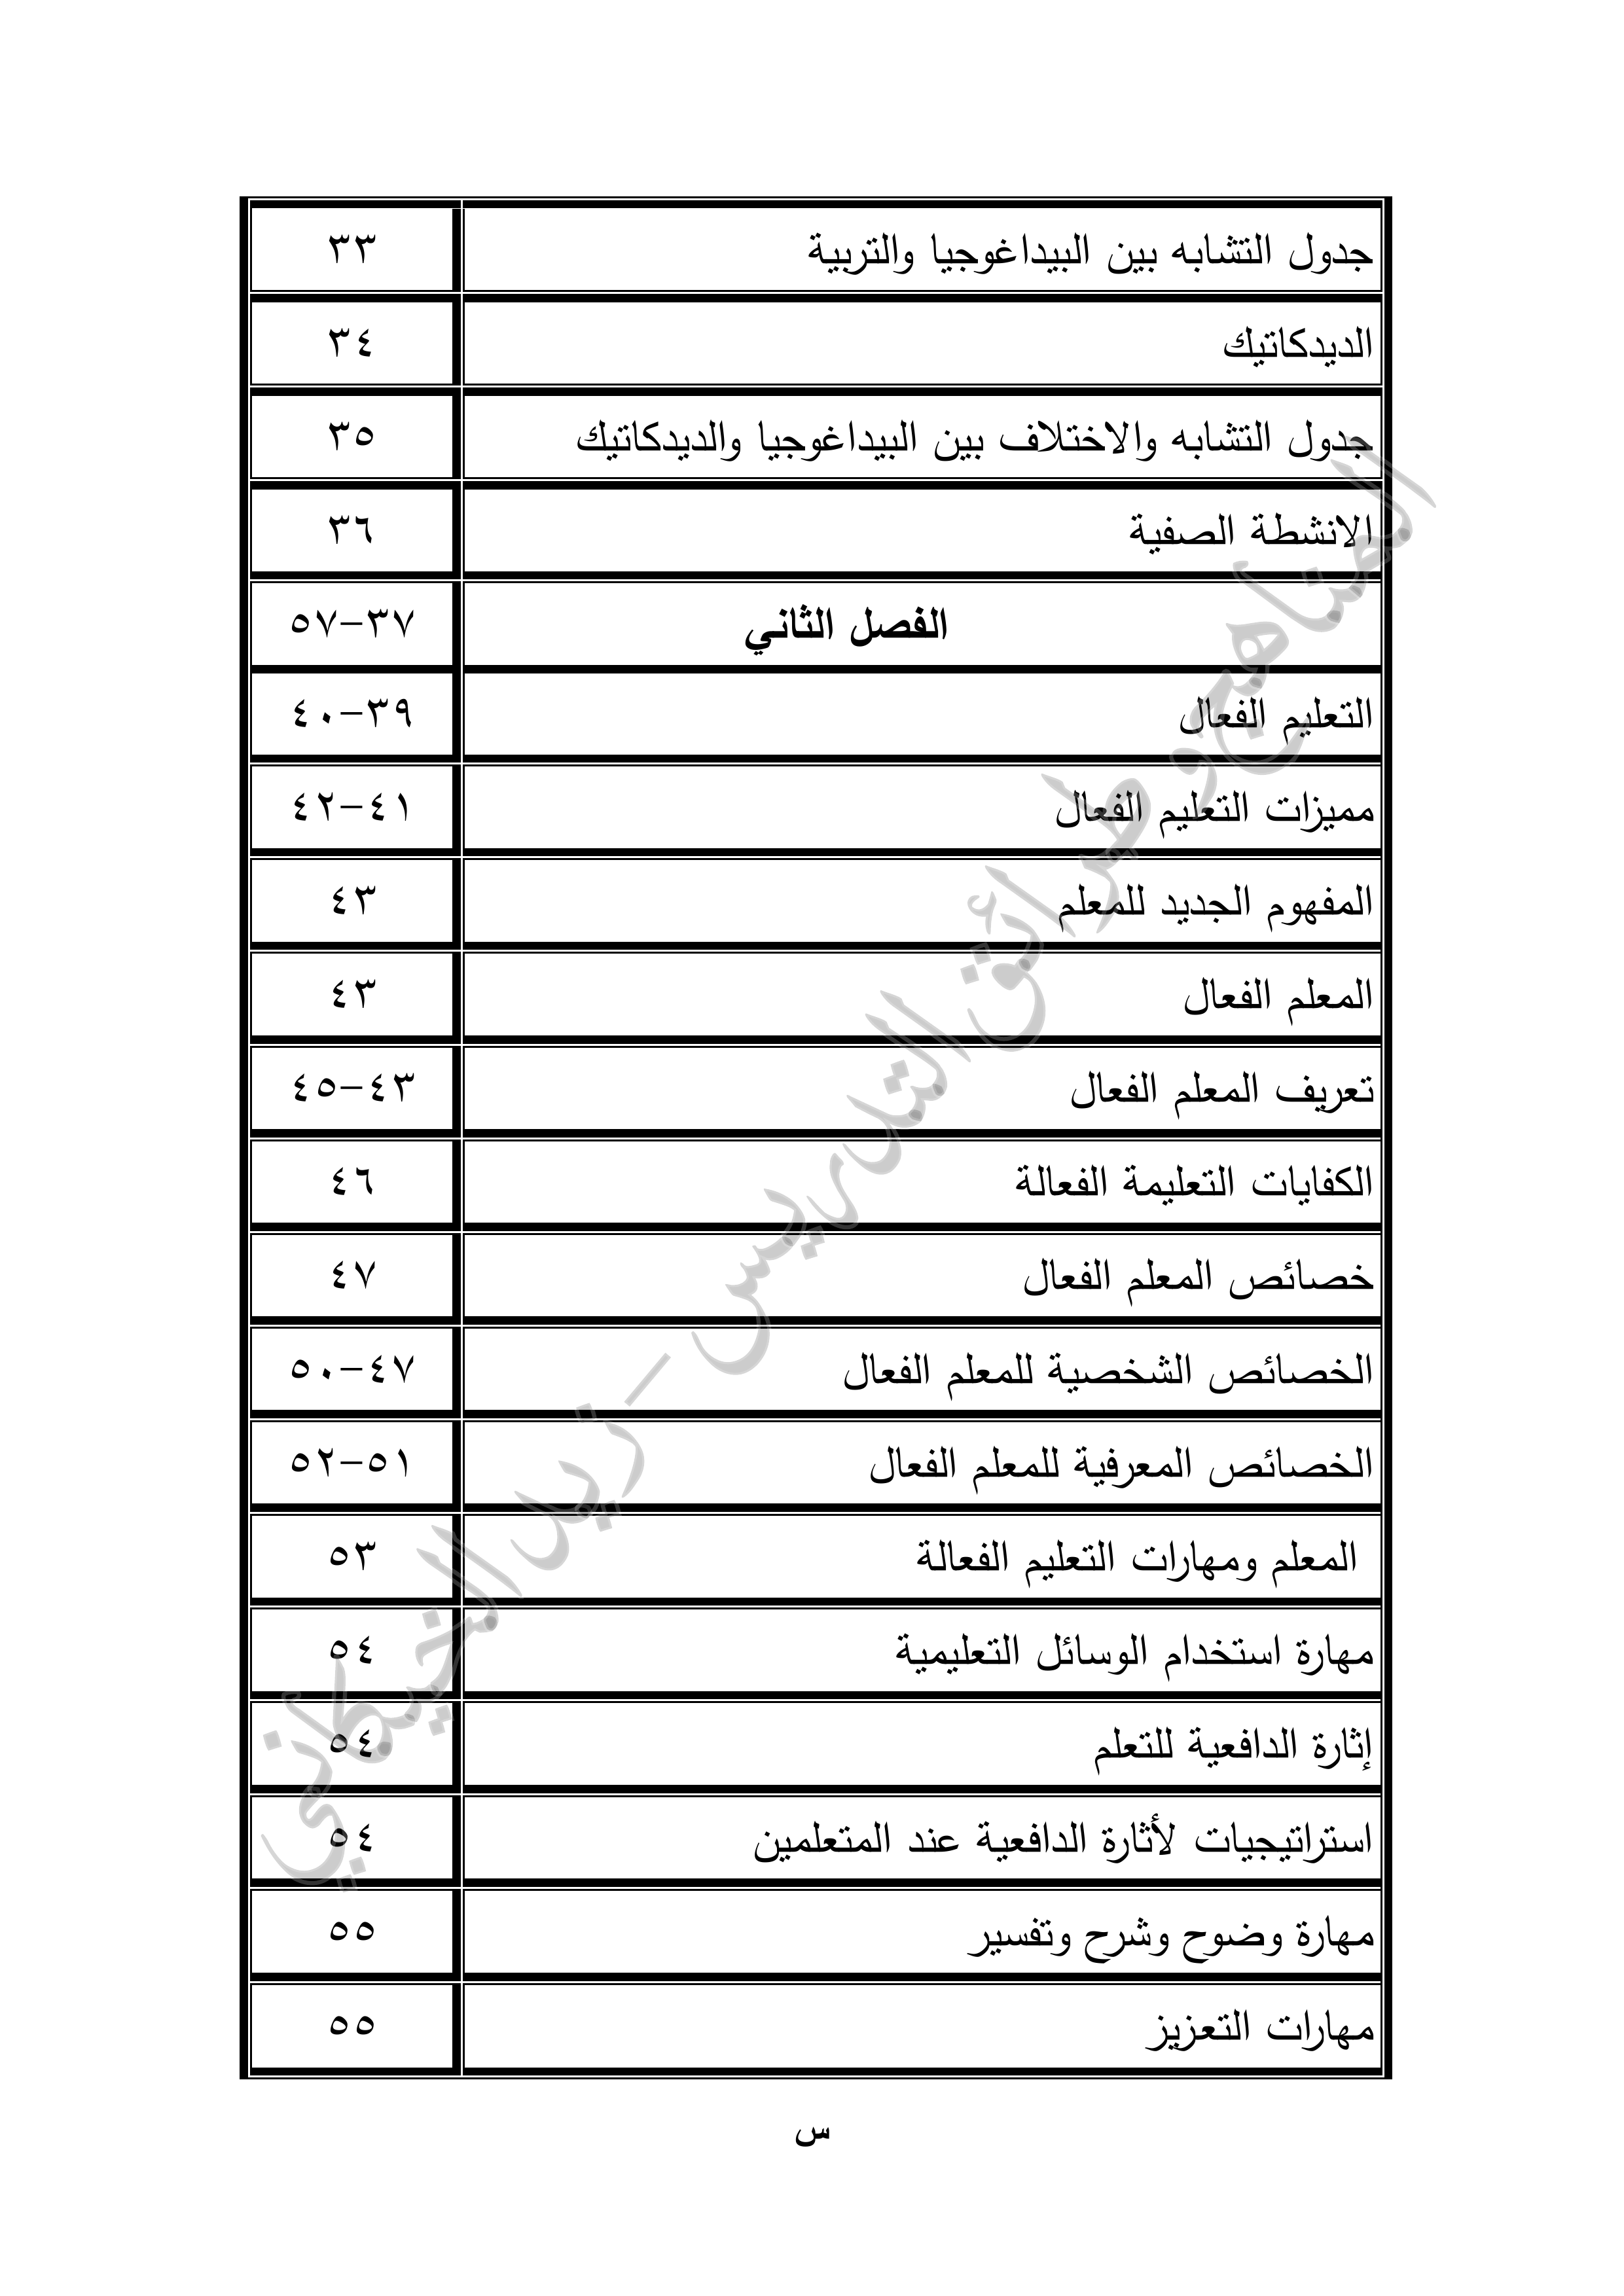 جدول التشابه بين البيداغوجيا والتربية ٣٣
الديدكاتيك ٣٤
جدول التشابه والاختلاف بين البيداغوجيا والديدكاتيك ٣٥
الانشطة الصفية ٣٦
الفصل الثاني ٣٧-٥٧
التعليم الفعال ٣٩-٤٠
مميزات التعليم الفعال ٤١-٤٢
المفهوم الجديد للمعلم ٤٣
المعلم الفعال ٤٣
تعريف المعلم الفعال ٤٣-٤٥
الكفايات التعليمة الفعالة ٤٦
خصائص المعلم الفعال ٤٧
الخصائص الشخصية للمعلم الفعال ٤٧-٥٠
الخصائص المعرفية للمعلم الفعال ٥١-٥٢
المعلم ومهارات التعليم الفعالة ٥٣
مهارة استخدام الوسائل التعليمية ٥٤
إثارة الدافعية للتعلم ٥٤
استراتيجيات لأثارة الدافعية عند المتعلمين ٥٤
مهارة وضوح وشرح وتفسير ٥٥
مهارات التعزيز ٥٥
س
المناهج وطرائق التدريس - زيد الخيكاني